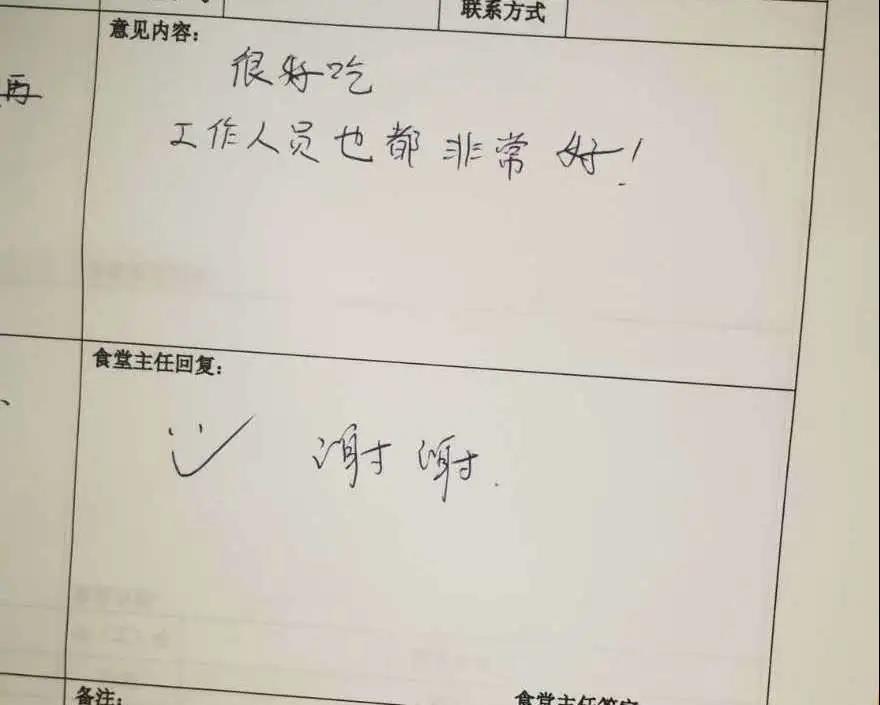 联系方式
意见内容:
再
很好吃
工作人员也都 非常 好!
食堂主任回复:
谢谢.
备注:
食堂主任签字